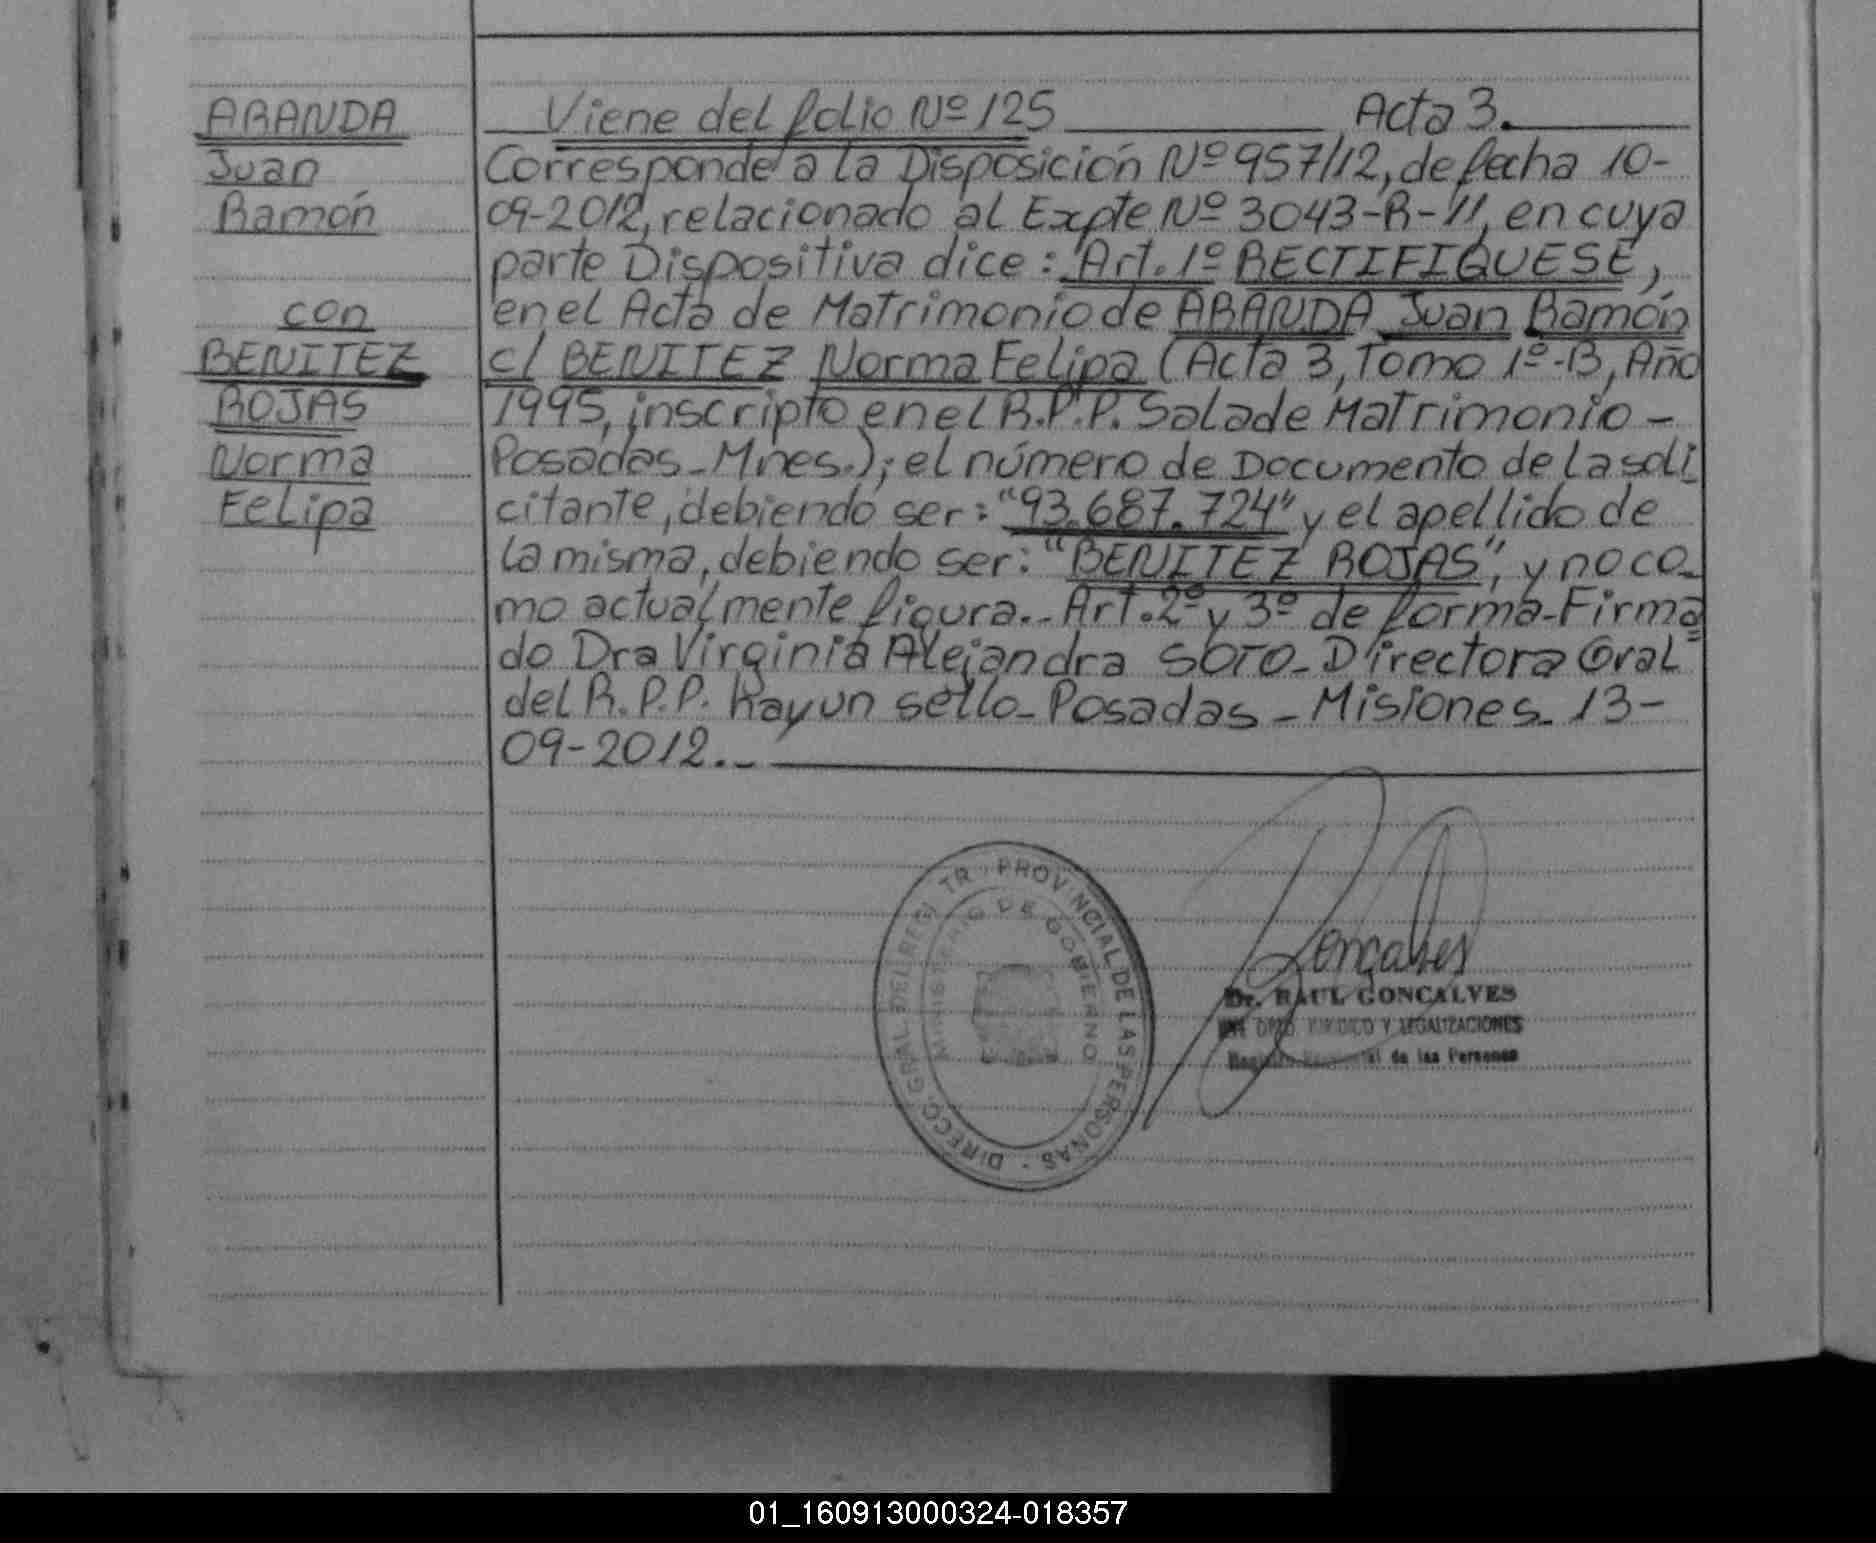 ARANDA
Juan
Ramón
con
BENITEZ
ROJAS
Norma
Felipa
Viene del folio Nº 125 Acta 3.
Corresponde a la Disposición Nº 957/12, de fecha 10-
09-2012, relacionado al Expte Nº 3043-R-11, en cuya
parte Dispositiva dice: Art. 1º RECTIFIQUESE,
en el Acta de Matrimonio de ARANDA Juan Ramón
c/ BENITEZ Norma Felipa (Acta 3, Tomo 1º-B, Año
1995, inscripto en el R.P.P. Sala de Matrimonio -
Posadas - Mnes.); el número de Documento de la soli
citante, debiendo ser: "93.687.724" y el apellido de
la misma, debiendo ser: "BENITEZ ROJAS", y no co-
mo actualmente figura.- Art. 2º y 3º de forma - Firma
do Dra Virginia Alejandra SOTO - Directora Gral
del R.P.P. hay un sello - Posadas - Misiones - 13-
09-2012.-
DIRECC. GRAL. DEL REGISTR. PROVINCIAL DE LAS PERSONAS -
MINISTERIO DE GOBIERNO
Goncalves
Dr. RAUL GONCALVES
DPTO. JURIDICO Y LEGALIZACIONES
Registro Provincial de las Personas
01_160913000324-018357